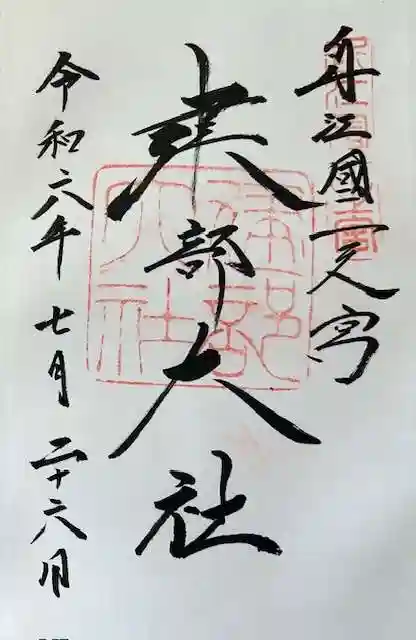 近江國一之宮
建部大社
令和六年七月二十六日
建部
大社